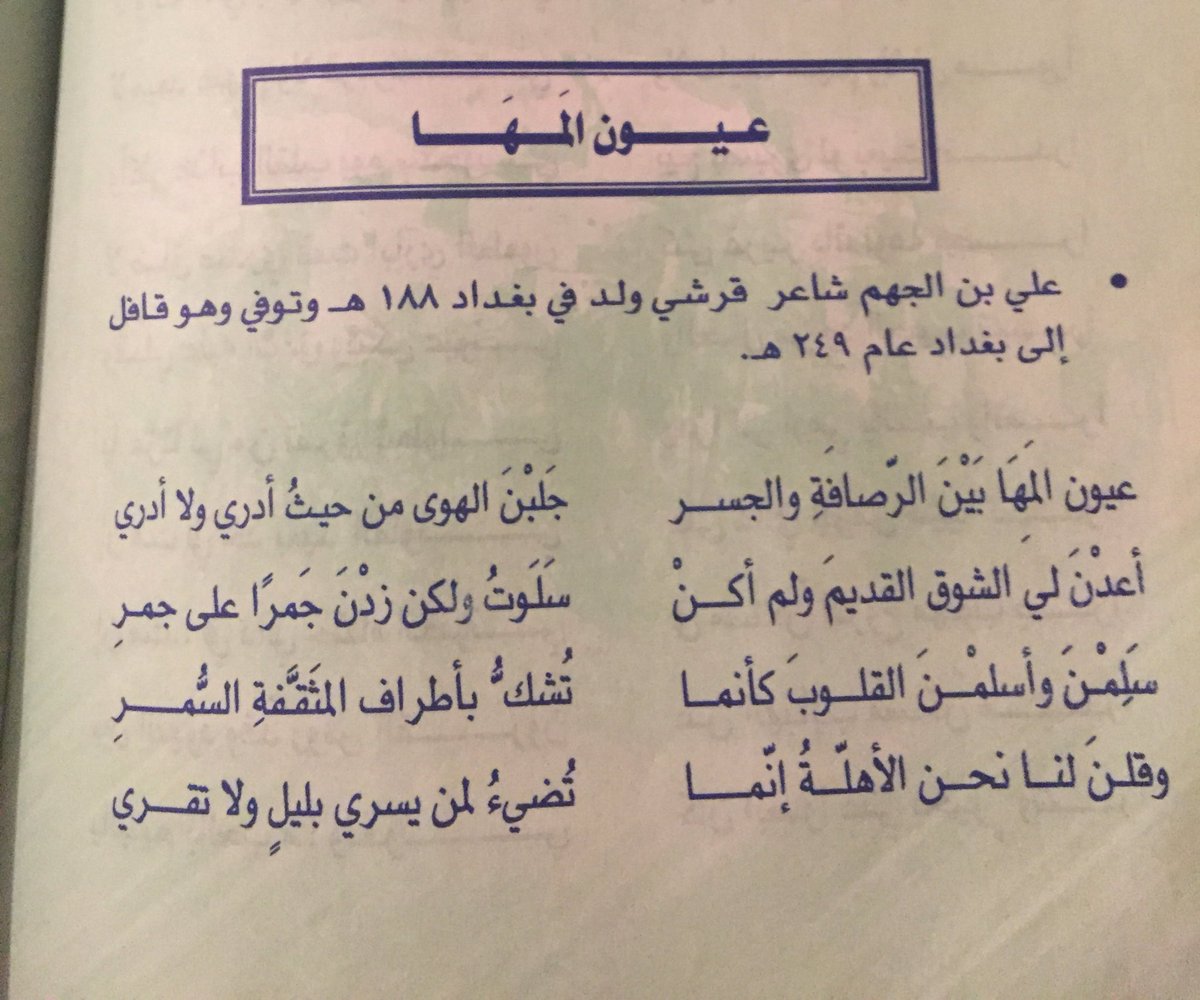 عيون المَهَا
• علي بن الجهم شاعر قرشي ولد في بغداد ١٨٨ هـ وتوفي وهو قافل
إلى بغداد عام ٢٤٩ هـ.
عيون المَهَا بَيْنَ الرّصافَةِ والجسر جَلبْنَ الهوى من حيثُ أدري ولا أدري
أعدْنَ لي الشوق القديمَ ولم أكنْ سَلَوتُ ولكن زدْنَ جَمرًا على جمرِ
سَلِمْنَ وأسلمْنَ القلوبَ كأنما تُشكُّ بأطراف المثَقَّفةِ السُّمرِ
وقلنَ لنا نحن الأهلّةُ إنّما تُضيءُ لمن يسري بليلٍ ولا تقري